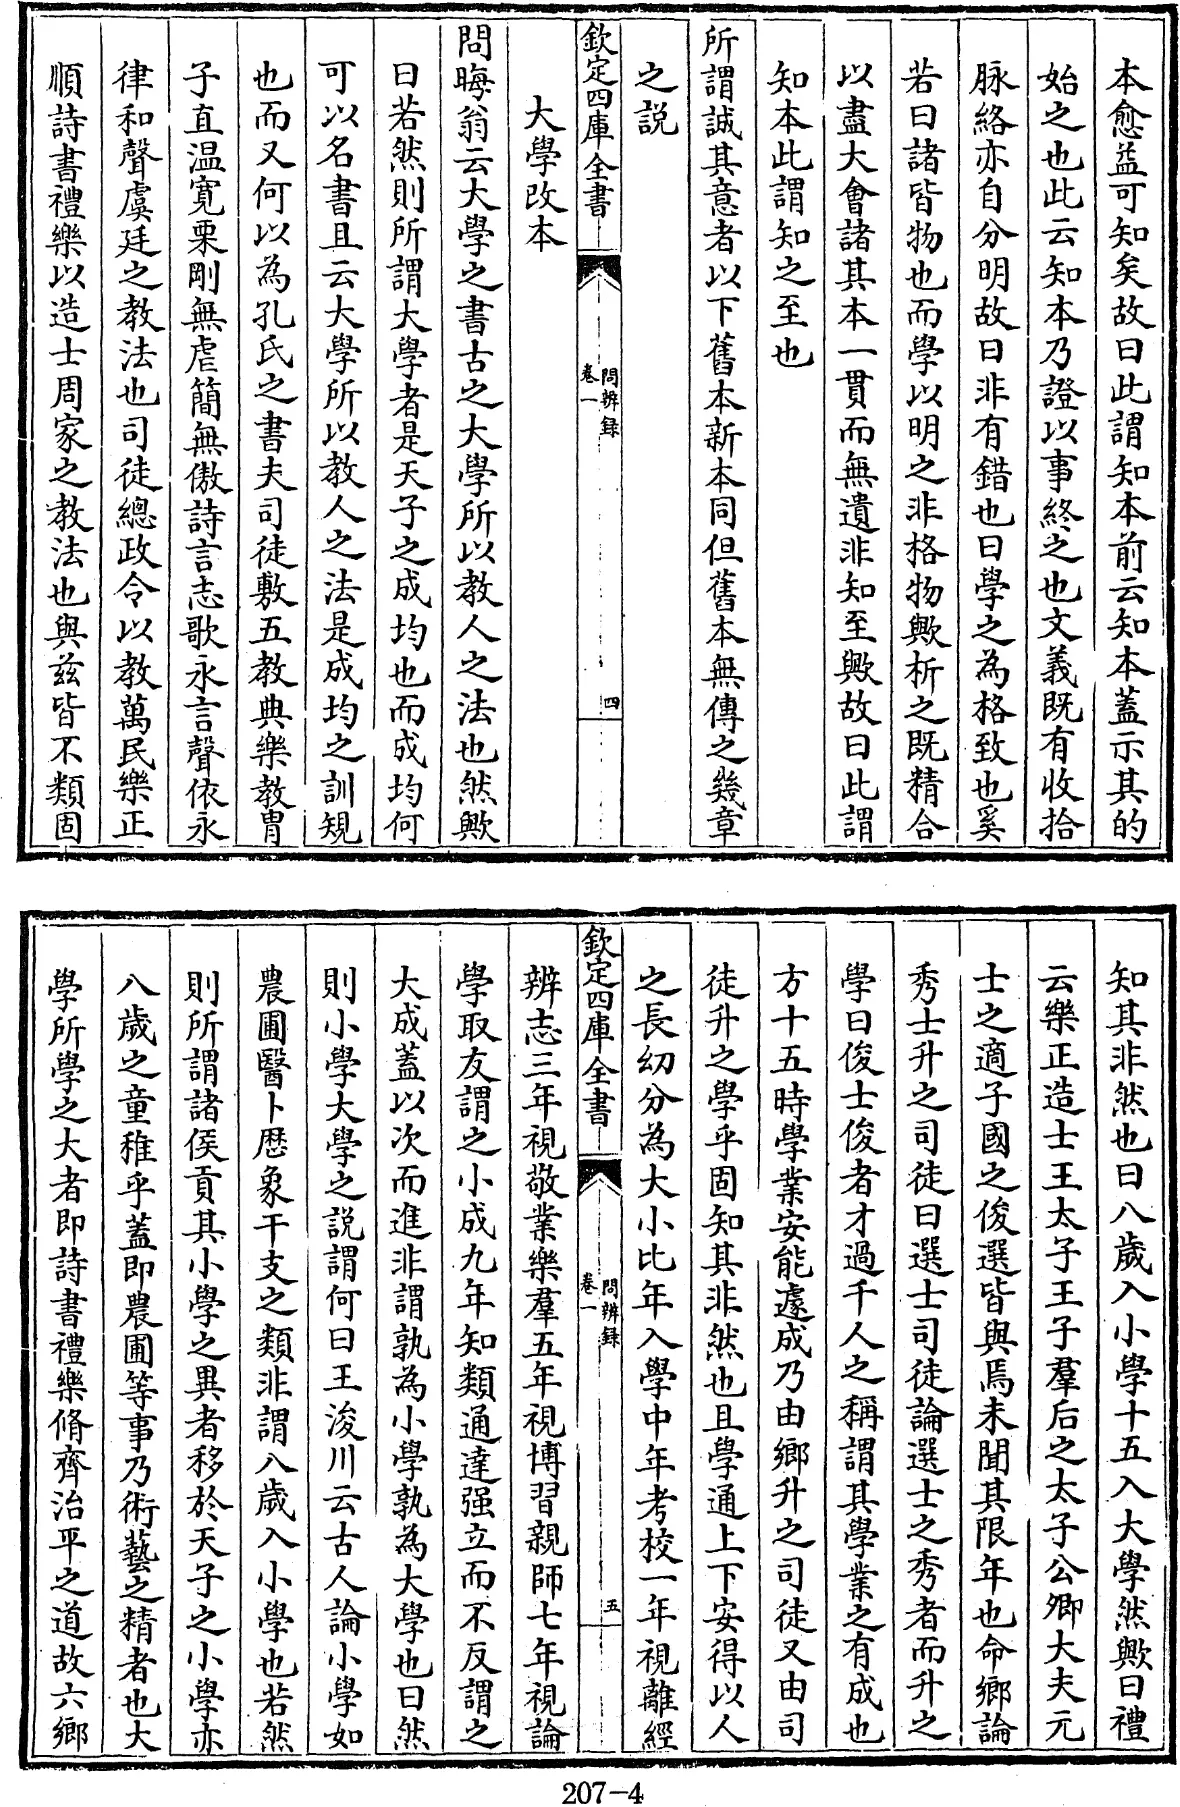 本愈益可知矣故曰此謂知本前云知本蓋示其的
始之也此云知本乃證以事終之也文義既有收拾
脉絡亦自分明故曰非有錯也曰學之為格致也奚
若曰諸皆物也而學以明之非格物歟析之既精合
以盡大會諸其本一貫而無遺非知至歟故曰此謂
知本此謂知之至也
所謂誠其意者以下舊本新本同但舊本無傳之幾章
之説
欽定四庫全書
問辨録
卷一
四
大學改本
問晦翁云大學之書古之大學所以教人之法也然歟
曰若然則所謂大學者是天子之成均也而成均何
可以名書且云大學所以教人之法是成均之訓規
也而又何以為孔氏之書夫司徒敷五教典樂教胄
子直温寛栗剛無虐簡無傲詩言志歌永言聲依永
律和聲虞廷之教法也司徒總政令以教萬民樂正
順詩書禮樂以造士周家之教法也與兹皆不類固
知其非然也曰八歲入小學十五入大學然歟曰禮
云樂正造士王太子王子羣后之太子公卿大夫元
士之適子國之俊選皆與焉未聞其限年也命鄉論
秀士升之司徒曰選士司徒論選士之秀者而升之
學曰俊士俊者才過千人之稱謂其學業之有成也
方十五時學業安能遽成乃由鄉升之司徒又由司
徒升之學乎固知其非然也且學通上下安得以人
之長幼分為大小比年入學中年考校一年視離經
欽定四庫全書
問辨録
卷一
五
辨志三年視敬業樂羣五年視博習親師七年視論
學取友謂之小成九年知類通達强立而不反謂之
大成蓋以次而進非謂孰為小學孰為大學也曰然
則小學大學之説謂何曰王浚川云古人論小學如
農圃醫卜歴象干支之類非謂八歲入小學也若然
則所謂諸侯貢其小學之異者移於天子之小學亦
八歲之童稚乎蓋即農圃等事乃術藝之精者也大
學所學之大者即詩書禮樂脩齊治平之道故六鄉
207-4